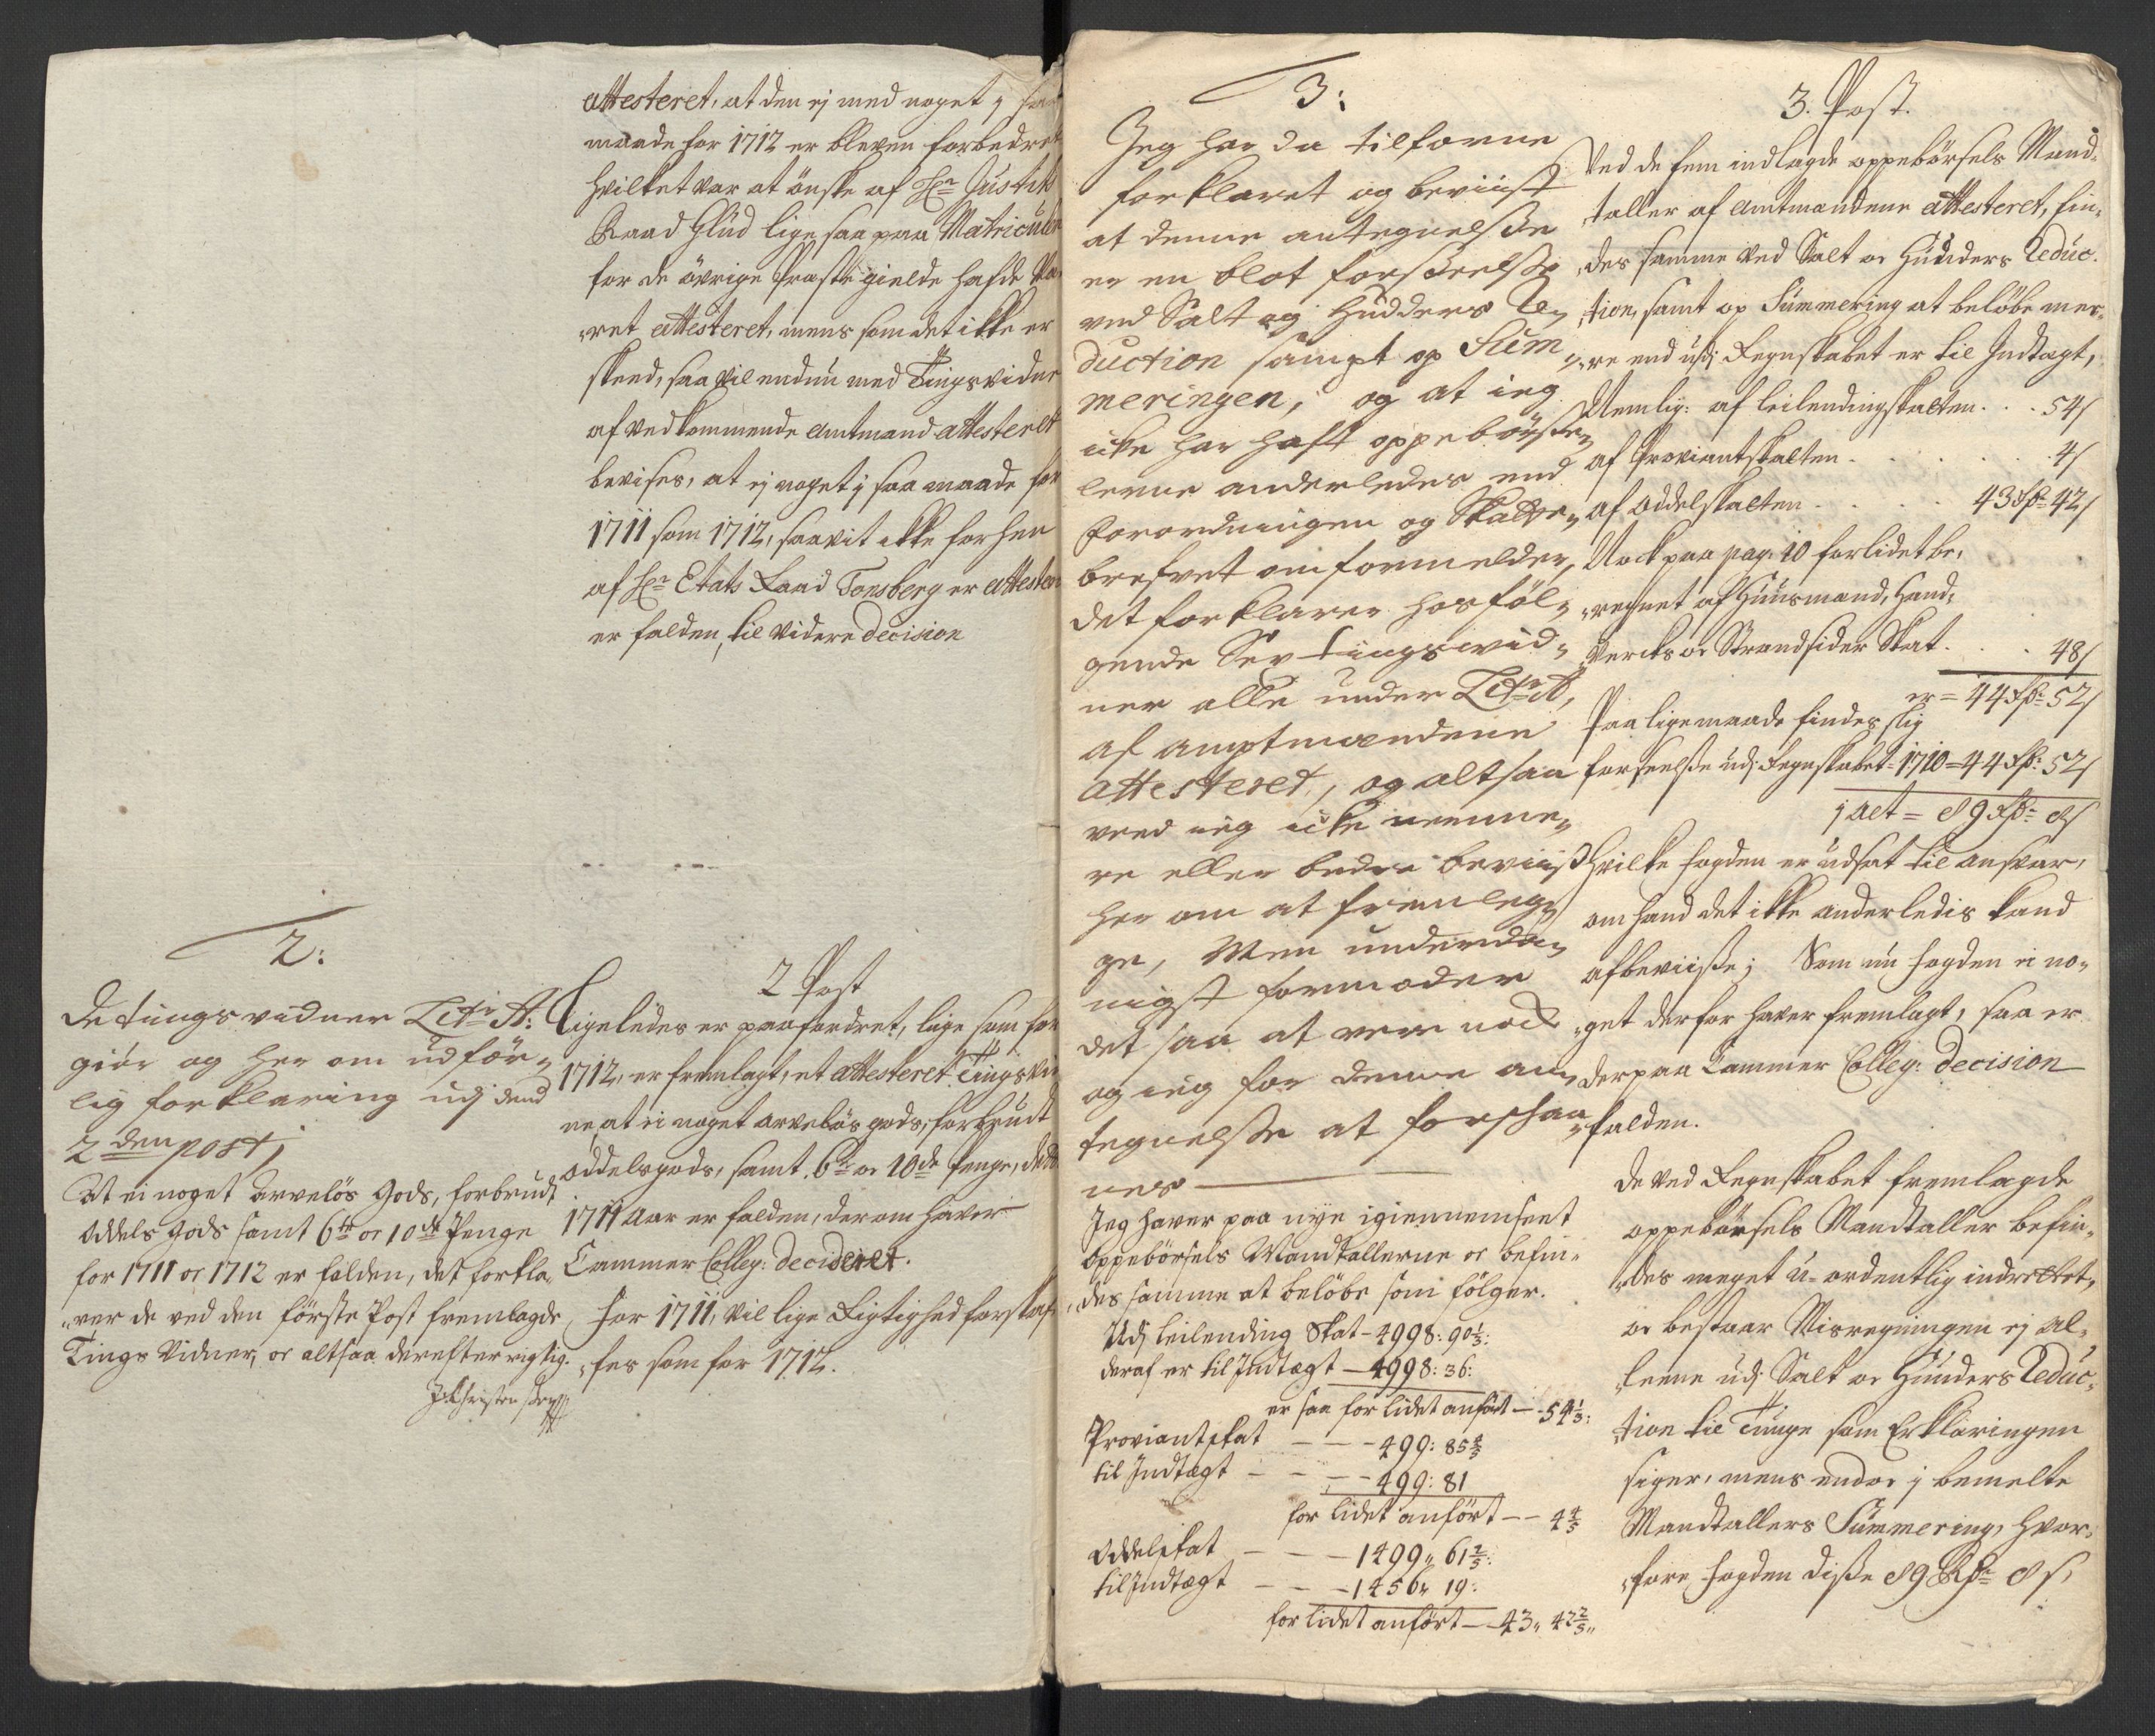 attesteret, at den ej med noget i saa
maade for 1712 er bleven forbedret
hvilket var at önske af Hr Justits
Raad Glud lige saa paa Matriculen
for de övrige Præste gielde hafde væ
ret attesteret, mens som det ikke er
skeed, saa vil endnu med Tingsvidne
af vedkommende Amtmand attesteret
bevises, at ej noget i saa maade for
1711 som 1712, saavit ikke forhen
af Hr Etats Raad Tonsberg er attesteret
er falden, til videre decision
2:
De tingsvidner Litr A:
giör og her om udför-
lig forklaring udj dend
2den post;
At ei noget arvelös gods, forbrudt
Oddels gods samt 6te og 10de Penge
for 1711 og 1712 er falden, det forkla-
rer de ved den förste Post fremlagde
Tings Vidner, og altsaa derefter rigtig.
2 Post
Ligeledes er paafordret, lige som for
1712, er fremlagt, et attesteret Tingsvid
ne, at ei noget arvelös gods, forbrudt
oddelsgods, samt 6te og 10de Penge, det
1711 Aar er falden, der om haver
Cammer Colleg: decideret.
For 1711, vil lige Rigtighed forskaf-
fes som for 1712.
3:
Jeg har da tilforne
forklaret og beviist
at denne antegnelsse
er en blot forsseelsse
ved Salt og Hudders Re-
duction sampt op Sum-
meringen, og at ieg
icke har haft oppebörsse-
lerne anderledes end
forordningen og Skatte-
brefvet om formelder,
det forklarer hosföl-
gende Sex tingsvid-
ner alle under Litr A,
af amptmændene
attesteret, og altsaa
veed ieg icke nemme-
re eller bedre beviis
her om at fremleg-
ge, Men underda-
nigst formoder
det saa at være nock
og ieg for denne an-
tegnelsse at forskaa-
nes
Jeg haver paa nye igiennemseet
oppebörsels Mandtallerne og befin-
des samme at belöbe som fölger.
Udj leilending Skat - 4998: 90 1/3:
deraf er til Indtægt - 4998: 36:
er saa for lidet anfört - - 54 1/3:
Proviantskat - - - 499: 85 4/5
til Indtægt - - - 499: 81
for lidet anfört - - 4 4/5
Oddelskat - - - 1499" 61 2/5:
til Indtægt - - - 1456" 19:
for lidet anfört - 43" 42 2/5"
3. Post.
Ved de fem indlagde oppebörsels Mand-
taller af Amtmandene attesteret, fin-
des samme ved Salt og Huuders Reduc-
tion, samt op Summering at belöbe mer-
re end udj Regnskabet er til Indtagt,
Nemlig: af leilendingskatten . . . 54 s
af Proviantskatten . . . . . 4 s
af Oddelskatten . . . . 43 Rdr 42 s
Nock paa pag: 10 forlidet be-
regnet af Huusmænd, Hand-
vercks og Strandsider Skat . . . 48 s
er = 44 Rdr 52 s
Paa lige maade findes slig
forseelsse udj Regnskabet 1710 = 44 Rdr: 52 s
i alt = 89 Rdr 8 s
hvilke fogden er udsat til ansvar,
om hand det ikke anderledis kand
afbeviisse; Som nu fogden ei no-
get derfor haver fremlagt, saa er
derpaa Cammer Colleg: decision
falden.
De ved Regnskabet fremlagde
oppebörsels Mandtaller befin-
des meget u-ordentlig indrettet,
og bestaar Misregningen ej al-
leene udj Salt og Huuders Reduc-
tion til Penge som Erklæringen
siger, mens endog i bemelte
Mandtallers Summering, hvor-
fore fogden disse 89 Rdr 8 s